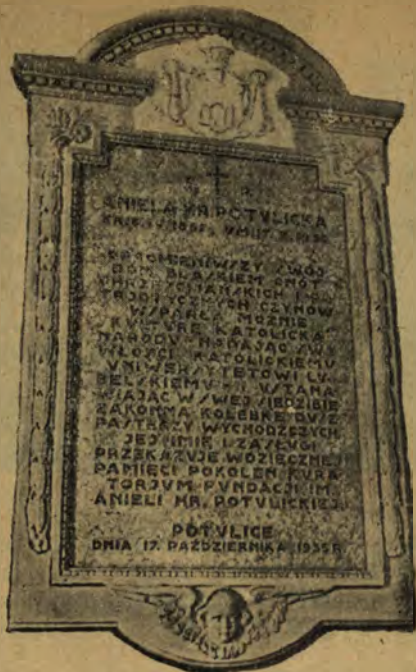 ANIELA HR. POTULICKA
OPROMIENIWSZY SWÓJ
DOM BLASKIEM CNÓT
CHRZEŚCIJAŃSKICH I PA
TRJOTYCZNYCH CZYNÓW
WSPARŁA MOŻNIE
KULTURĘ KATOLICKĄ
NARODU NADAJĄC SWE
WŁOŚCI KATOLICKIEMU
UNIWERSYTETOWI LU
BELSKIEMU I USTANA
WIAJĄC W SWEJ SIEDZIBIE
ZAKONNĄ KOLEBKĘ DUSZ
PASTERZY WYCHODŹCZYCH
JEJ IMIĘ I ZASŁUGI
PRZEKAZUJE WDZIĘCZNEJ
PAMIĘCI POKOLEŃ KURA
TORJUM FUNDACJI IM.
ANIELI HR. POTULICKIEJ
POTULICE
DNIA 17. PAŹDZIERNIKA 1935 R.